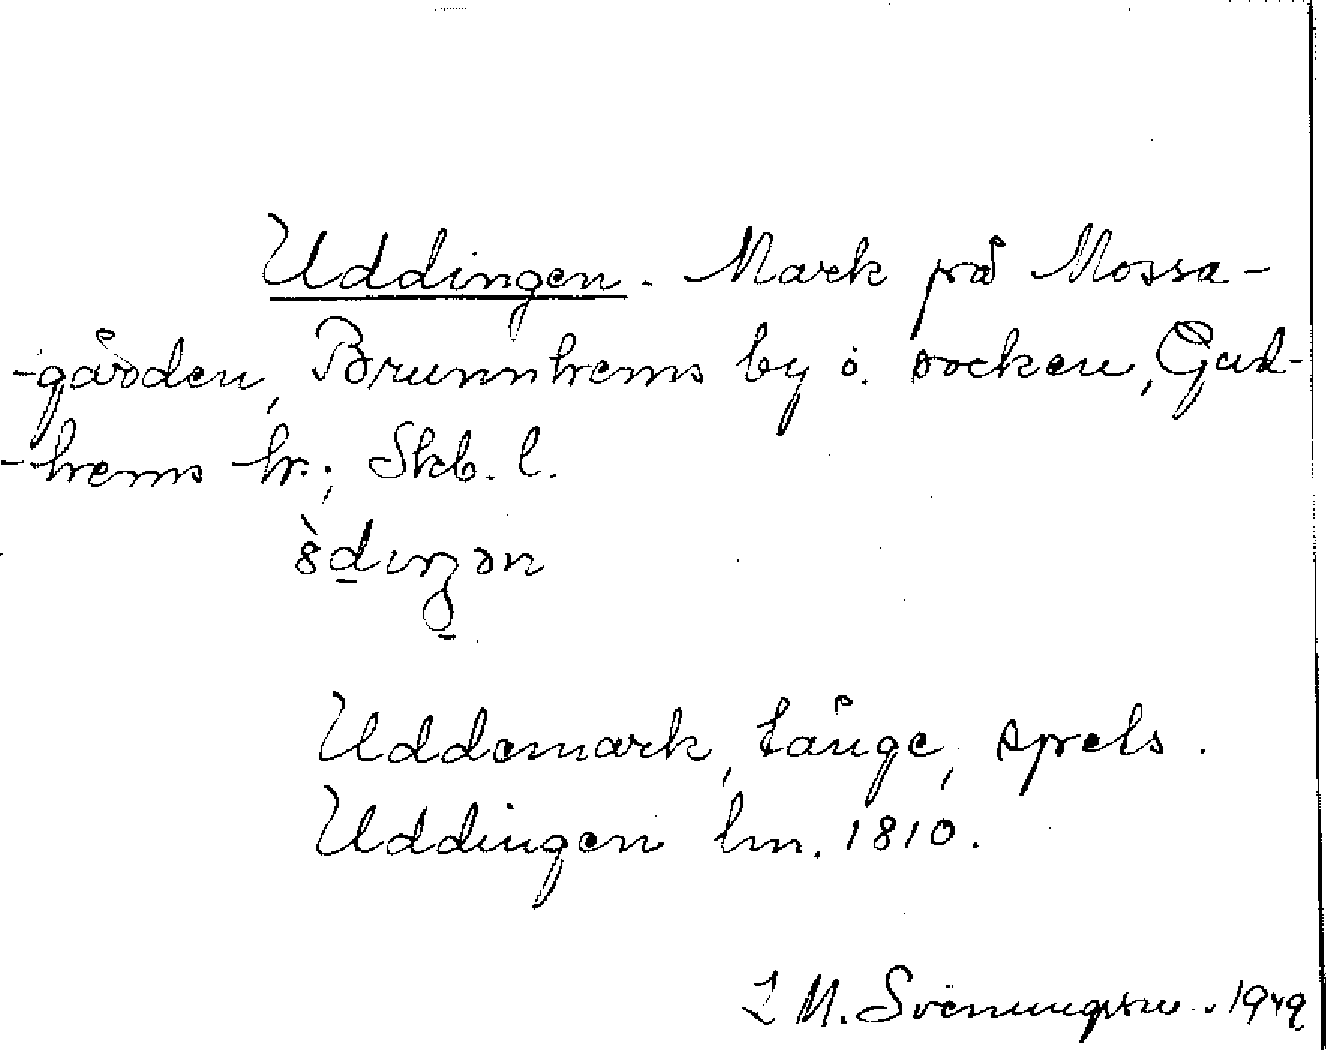 Uddingen. Mark på Mossa-
-gården, Brunnhems by o. socken, Gud-
-hems hr.; Skb. l.
Uddamark, Långe, spels.
Uddingen lm. 1810.
L M. Svenungsson. 1949